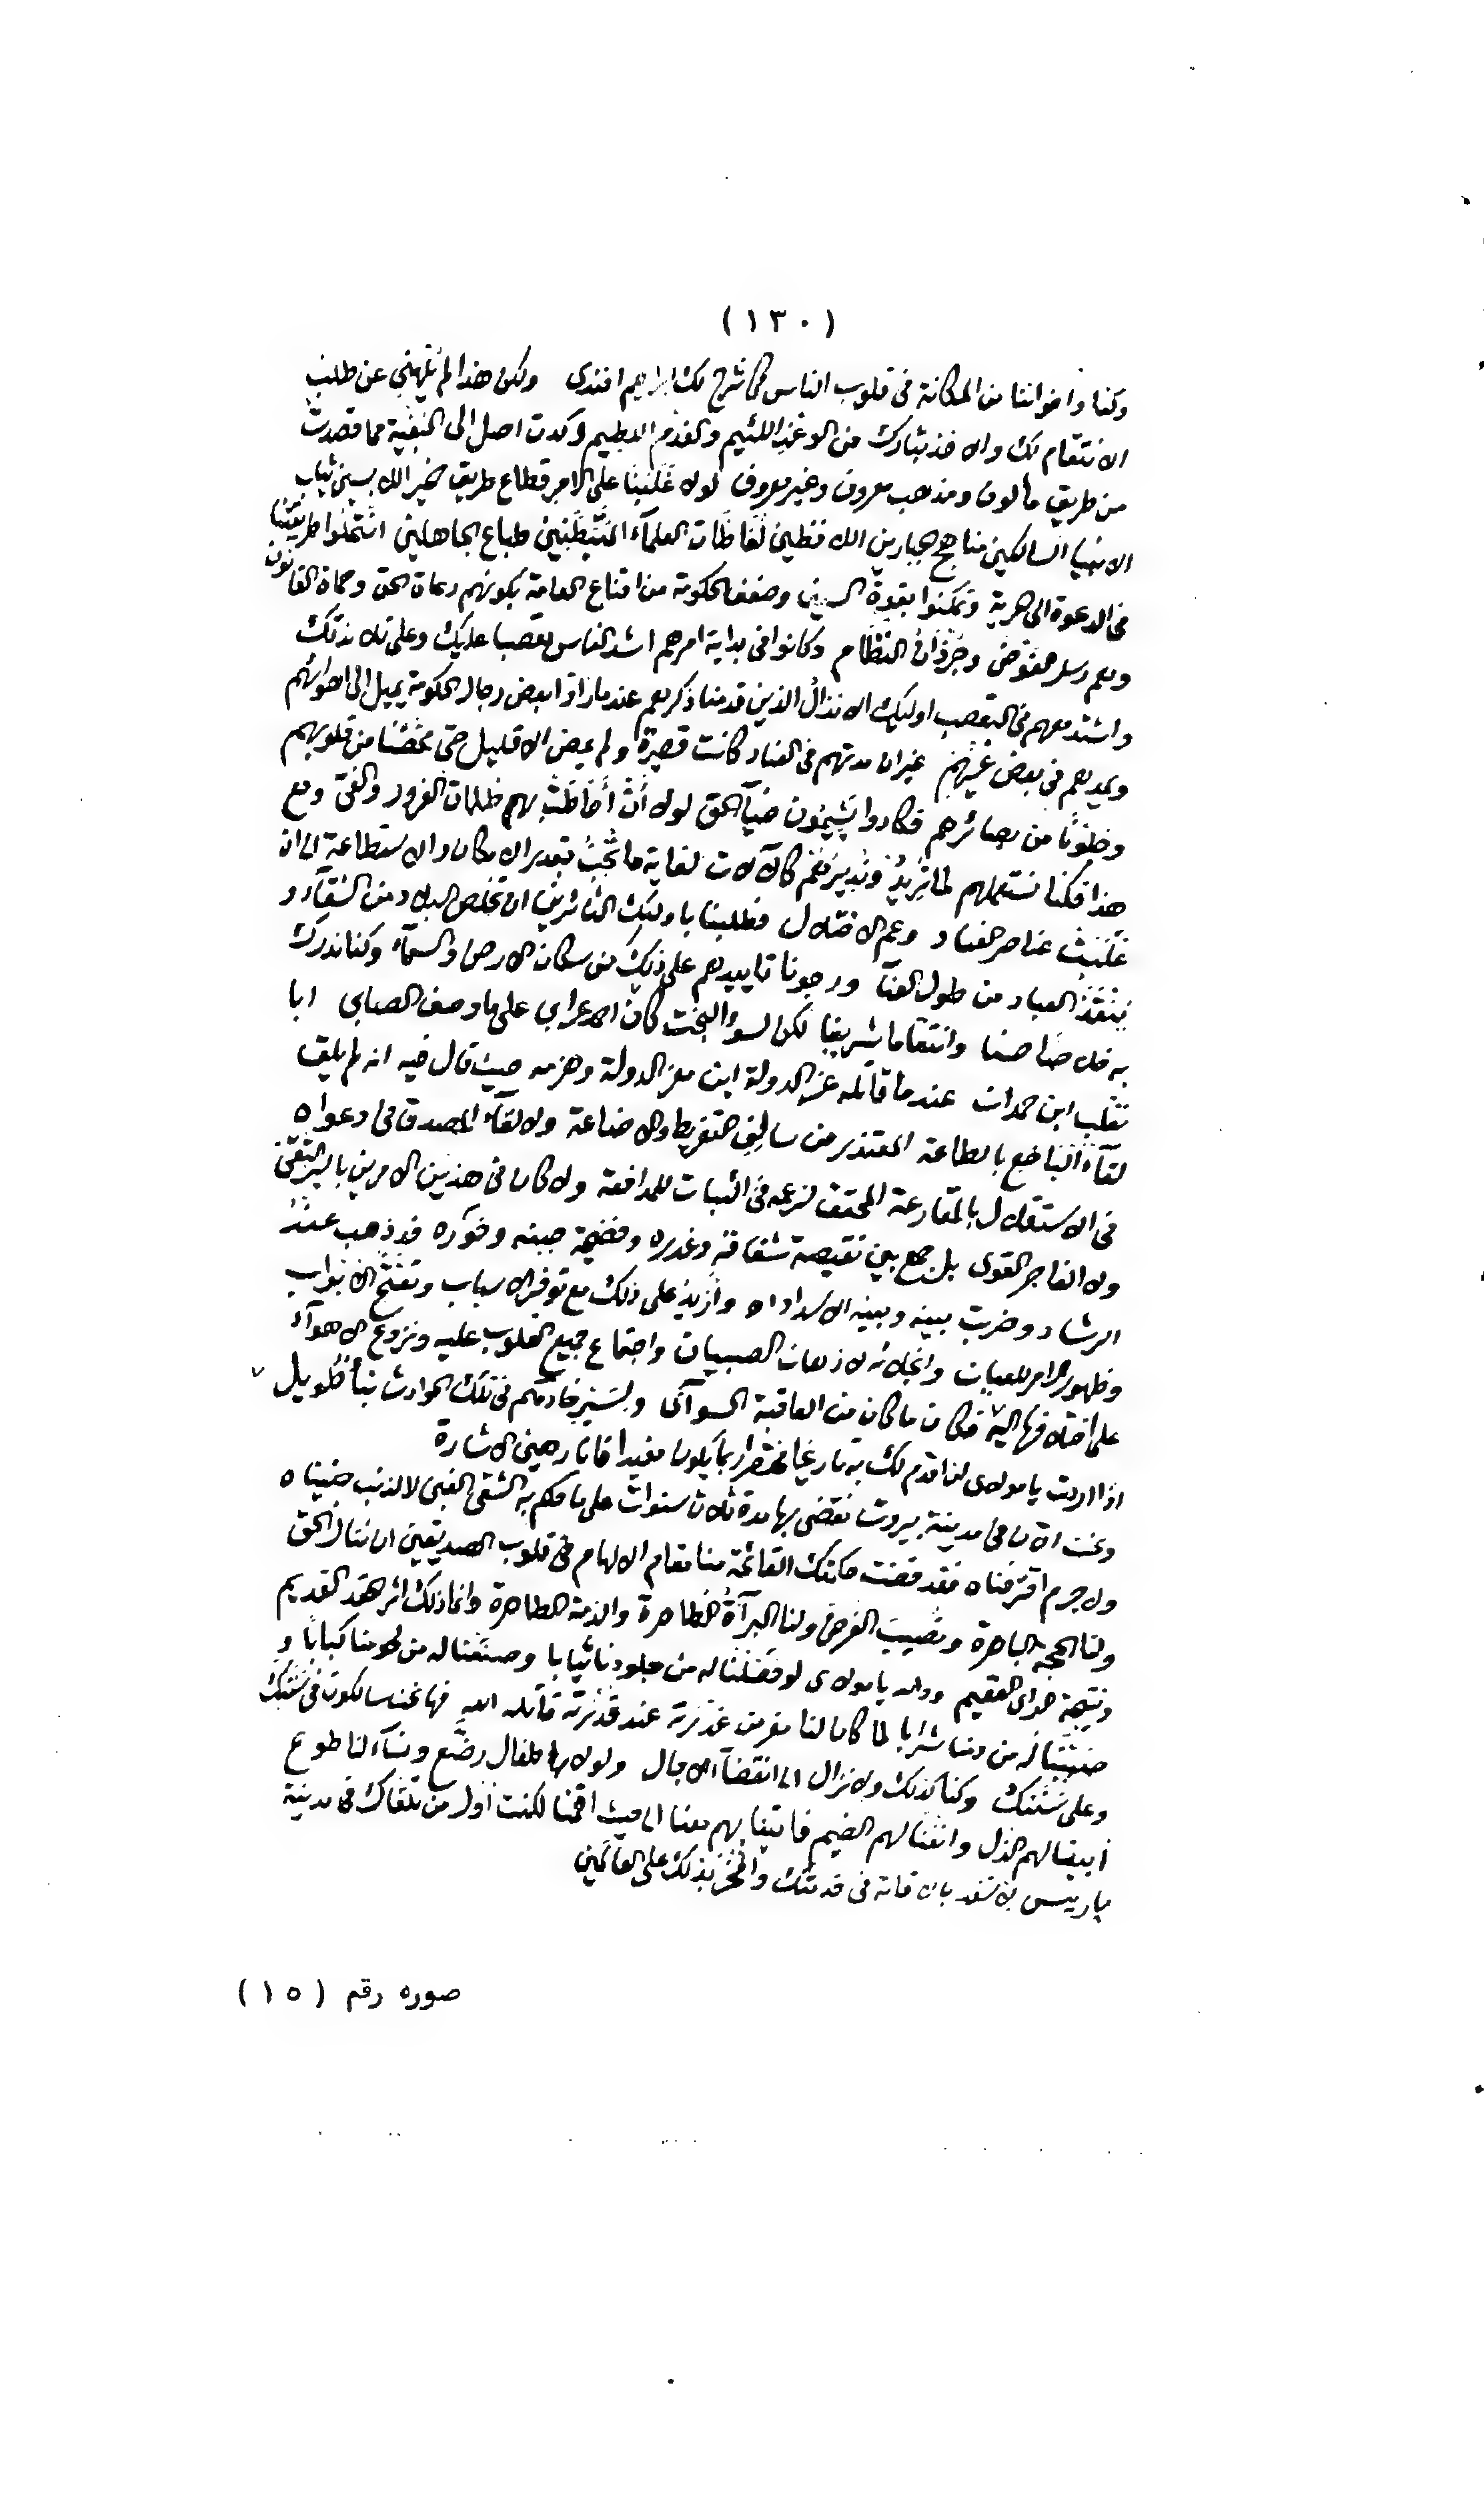 (١٣٠)
وكنا واخواننا من المكانة في قلوب الناس كما شرح لك ابراهيم افندى ولكن هذا لم يلهني عن طلب
الانتقام لك والاخذ بثارك من الوغد اللئيم والفدم اللطيم وكدت اصل الى البغية مما قصدت
من طريق مألوف ومذهب معروف وغير معروف لولا غلبنا على الامر قطاع طريق خير اللابسين ثياب
الانبيا السالكين مناهج الجبارين اللافظين لفاظات العلمآء المتبطنين طباع الجاهلين انتحلوا طريقتنا
في الدعوة الى الحرية وتمكنوا بقوة السين وضعف الحكومة من اقناع العامة بكونهم دعاة الحق وحماة القانون
وهم رسل الفوضى وجرذان النظام وكانوا في بداية امرهم اشد الناس تعصبا عليك وعلى تلامذتك
واشتد معهم في التعصب اوليك الانذال الذين قدمنا ذكرهم عندما راوا بعض رجال الحكومة يميل الى اهوائهم
ويمدهم في بعض غيهم غير ان مدتهم في العناد كانت قصيرة ولم يمض الا قليل حتى تمكنا من قلوبهم
ودخلونا من بصائرهم فكادوا يشيمون ضيآ الحق لولا أن أحاطت بهم ظلمات الغرور والغى ومع
هذا فكنا نستعملهم لما نريد ونديرهم كالآلات لغاية ما نحب بقدر الامكان والاستطاعة الى ان
غلبت عناصر الفساد وعم الاختلال فطلبنا باوليك الثائرين ان تخلص البلاد من الشقآء و
ينقذ العباد من طول العنآ ورجونا تاييدهم على ذلك من سكان الارض والسمآء وكنا ندرك
به خلاصا حسنا وانتقاما شريفا لكن لسوء البخت كان احمد عرابي على ما وصف الصابي ابا
تغلب ابن حمدان عندما قاتله عز الدولة ابن معز الدولة وهزمه حيث قال فيه انه لم يلق
لقآء الباخع بالطاعة المعتذر من سالف التفريط والاضاعة ولا لقآء المصدق في دعواه
في الاستقلال بالمقارعة المحقق لزعمه في الثبات للمدافعة ولا كان في هذين الامرين بالبر التقى
ولا الفاجر القوى بل جمع بين نقيصة شقاقه وغدره وفضيحة جبنه وخوره قد ذهب عنه
الرشاد وضربت بينه وبينه الاسداد اه وأزيد على ذلك مع توفر الاسباب وتفتح الابواب
وظهور الامر للعيان وانجلائه لاذهان الصبيان واجتماع جميع القلوب عليه ونزوع الاهوآء
على اختلافها اليه فكان ما كان من العاقبة السوآى ولسير خادمكم في تلك الحوادث نبأ طويل
اذا اردت يا مولاى لنا اقدم لك به تاريخا مختصرا ربما يكون مفيدا فانا رهين الاشارة
ونحن الآن في مدينة بيروت نقضى بها مدة ثلاث سنوات على ما حكم به الشقى الغبى لا لذنب جنيناه
ولا جرم اقترفناه فقد قضت حكمتك القائمة منا مقام الالهام في قلوب الصديقين ان ننال الحق
ولنا الحجة الباهرة ونصيب الغرض ولنا البرآة الظاهرة والذمة الطاهرة وانما ذلك اثر حقد القديم
ونتيجة هواى العقيم ووالله يا مولاى لو فصلنا له من جلودنا ثيابا وصنعنا له من لحومنا كبابا و
صببنا له من دمنا شرابا لما كان لنا مفر من غدرته عند قدرته قاتله الله فها نحن سالكون في سنتك
وعلى سنتك وكنا كذلك ولا نزال الى انقضآء الاجال ولولا اطفال رضع ونسآء لنا طوع
أبينا لهم الذل وانفنا لهم الضيم فاتينا بهم معنا الى حيث اقمنا لكنت اول من تلقاك في مدينة
باريس لاسعد بالاقامة في خدمتك وافخر بذلك على العالمين
صوره رقم (١٥)